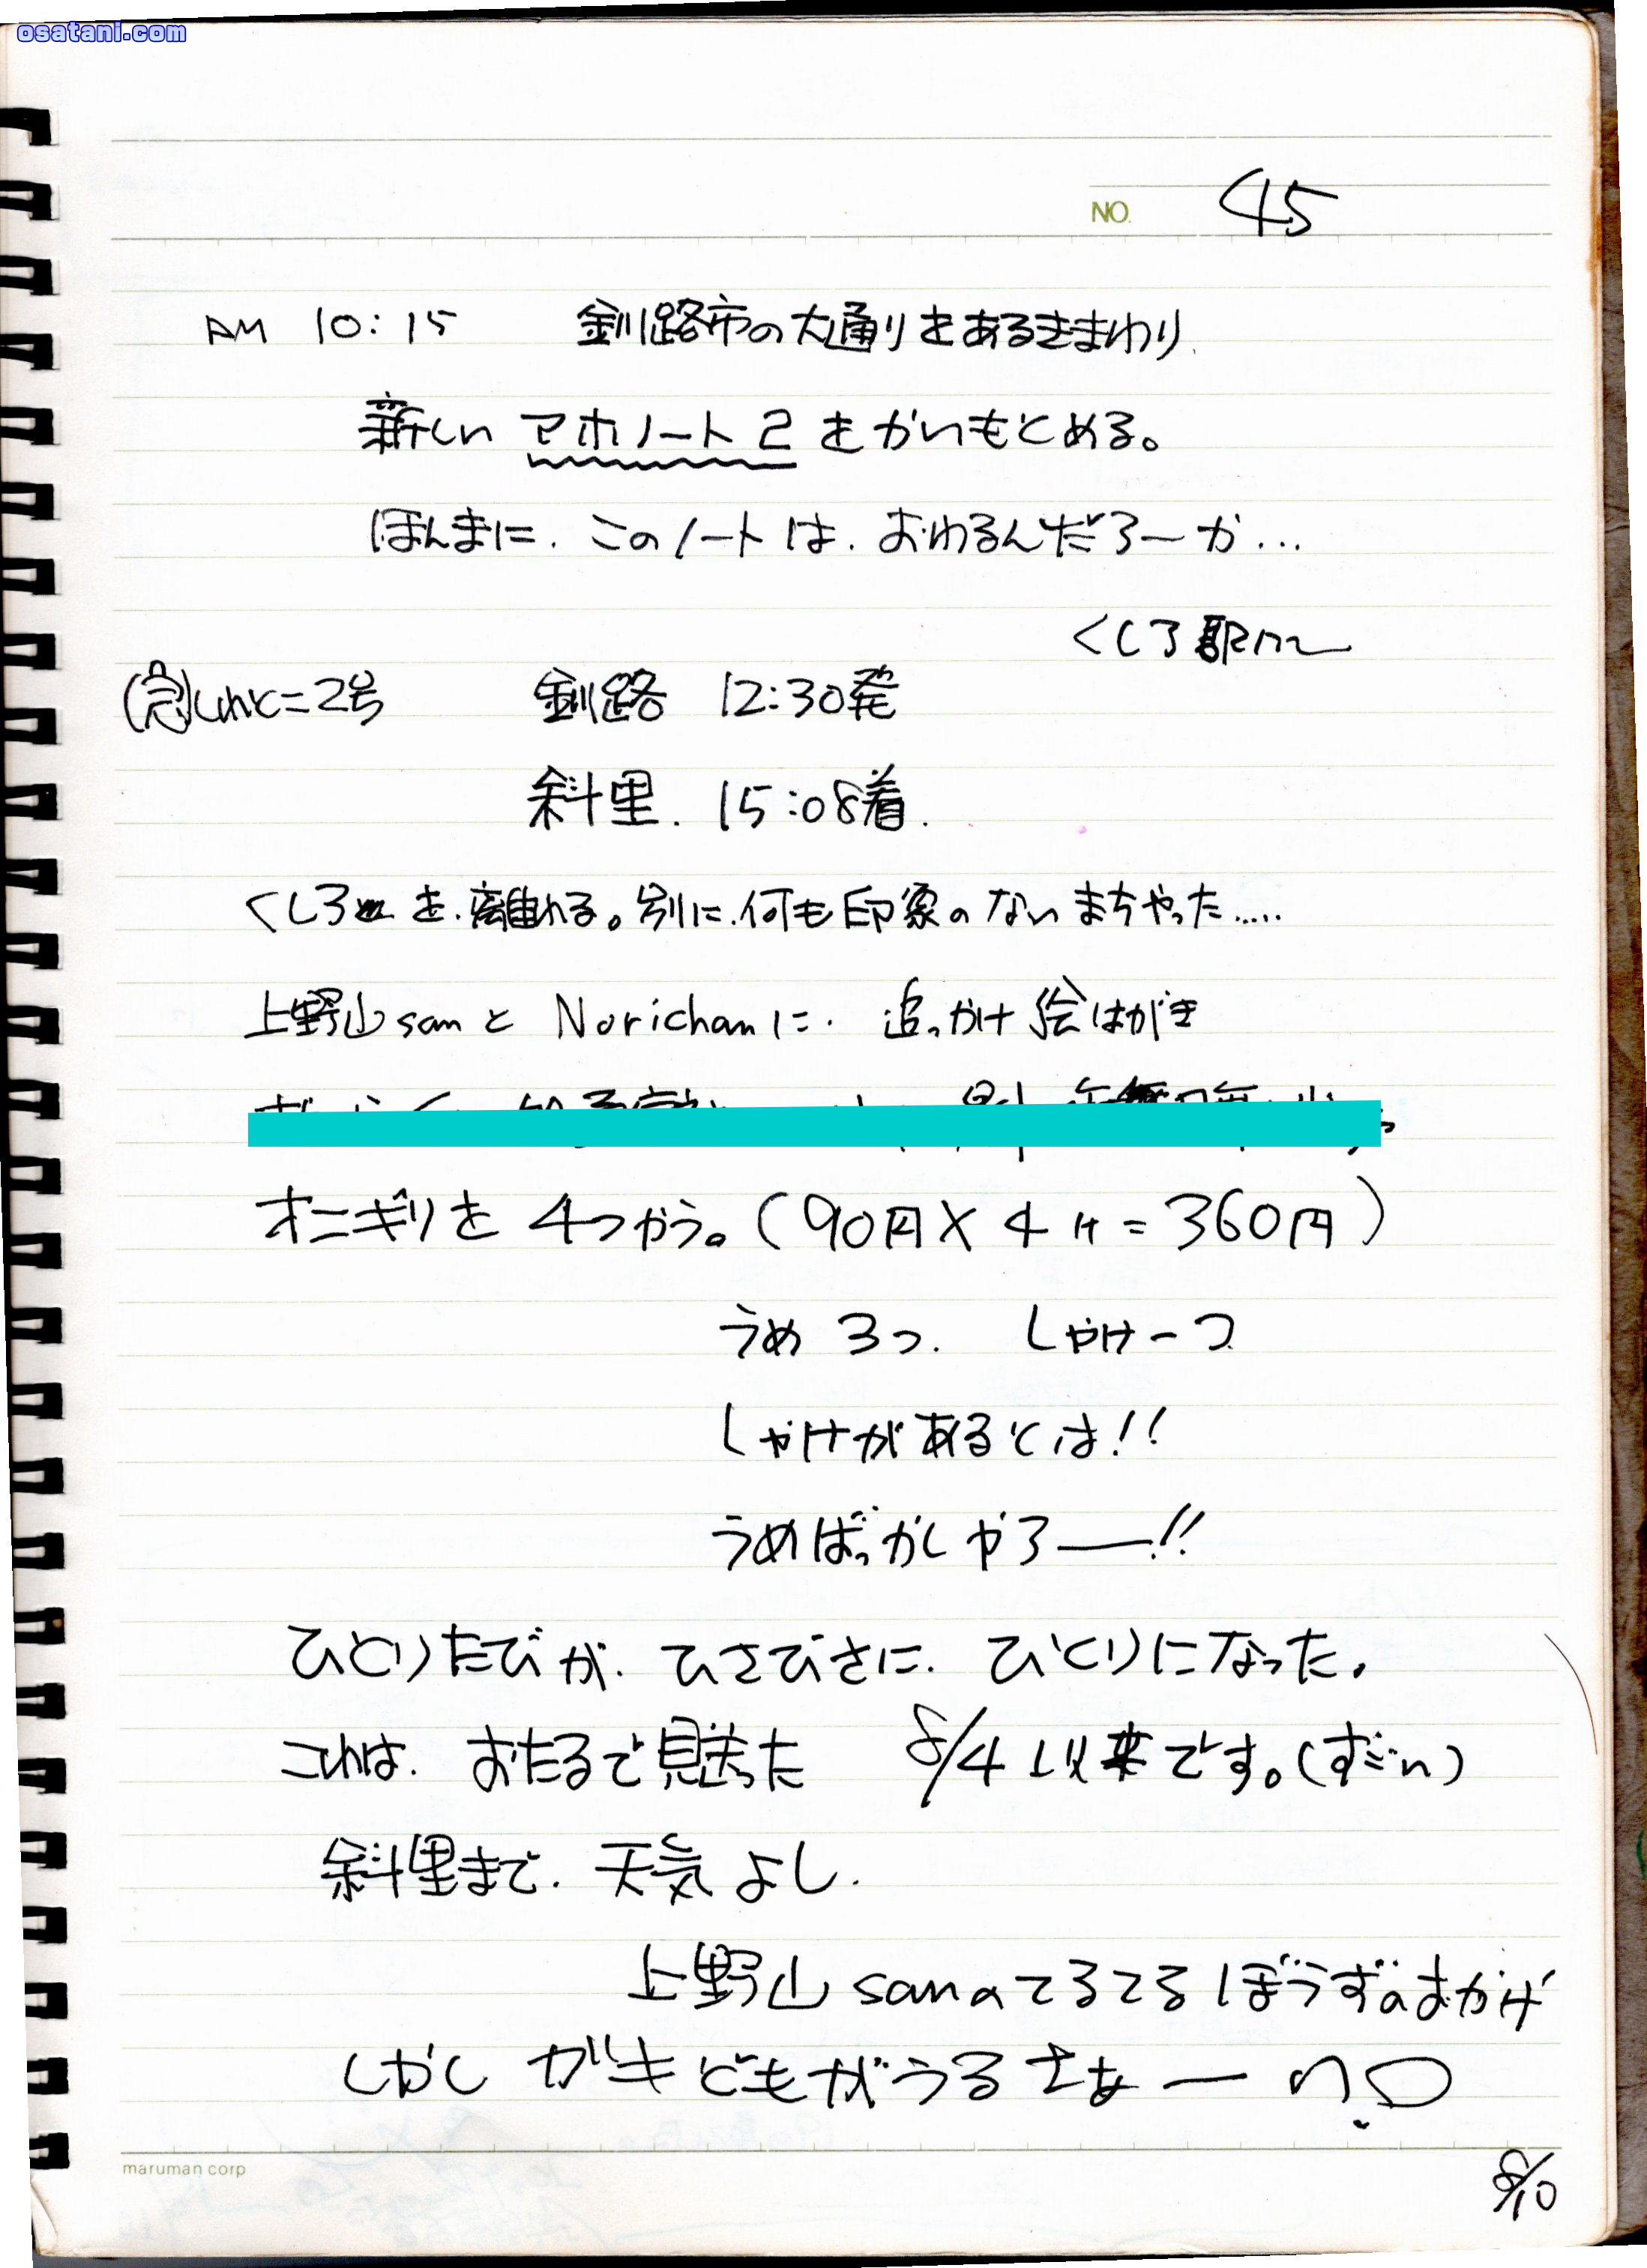 osatani.com
NO. 45
AM 10:15 釧路市の大通りをあるきまわり
新しい アホノート2 をかいもとめる。
ほんまに. このノートは. おわるんだろーか...
くしろ駅にて
(急)しれとこ2号 釧路 12:30発
斜里. 15:08着.
くしろを.離れる。別に.何も印象のないまちやった.....
上野山sanと Norichanに. 追っかけ絵はがき
オニギリを 4つかう。(90円×4ケ=360円)
うめ 3つ. しゃけ一つ
しゃけがあるとは!!
うめばっかしやろー!!
ひとりたびが. ひさびさに. ひとりになった.
これは. おたるで見送った 8/4 以来です。(すごい)
斜里まで. 天気よし.
上野山sanのてるてるぼうずのおかげ
しかし ガキどもがうるさぁーい
maruman corp
8/10